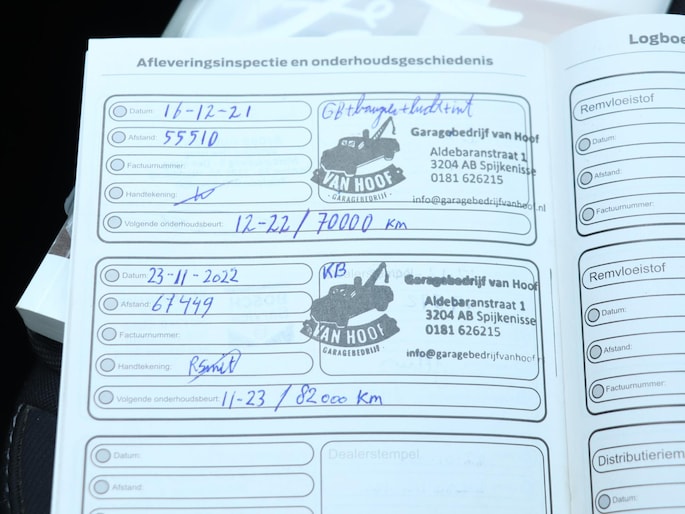 Afleveringsinspectie en onderhoudsgeschiedenis
Datum: 16-12-21
Afstand: 55510
Factuurnummer:
Handtekening:
Volgende onderhoudsbeurt: 12-22 / 70000 km
Garagebedrijf van Hoof
VAN HOOF
· GARAGEBEDRIJF ·
Aldebaranstraat 1
3204 AB Spijkenisse
0181 626215
info@garagebedrijfvanhoof.nl
Datum: 23-11-2022
Afstand: 67449
Factuurnummer:
Handtekening: RSmit
Volgende onderhoudsbeurt: 11-23 / 82000 km
KB
Garagebedrijf van Hoof
VAN HOOF
GARAGEBEDRIJF
Aldebaranstraat 1
3204 AB Spijkenisse
0181 626215
info@garagebedrijfvanhoof
Datum:
Afstand:
Dealerstempel
Logboe
Remvloeistof
Datum:
Afstand:
Factuurnummer:
Remvloeistof
Datum:
Afstand:
Factuurnummer:
Distributieriem
Datum: